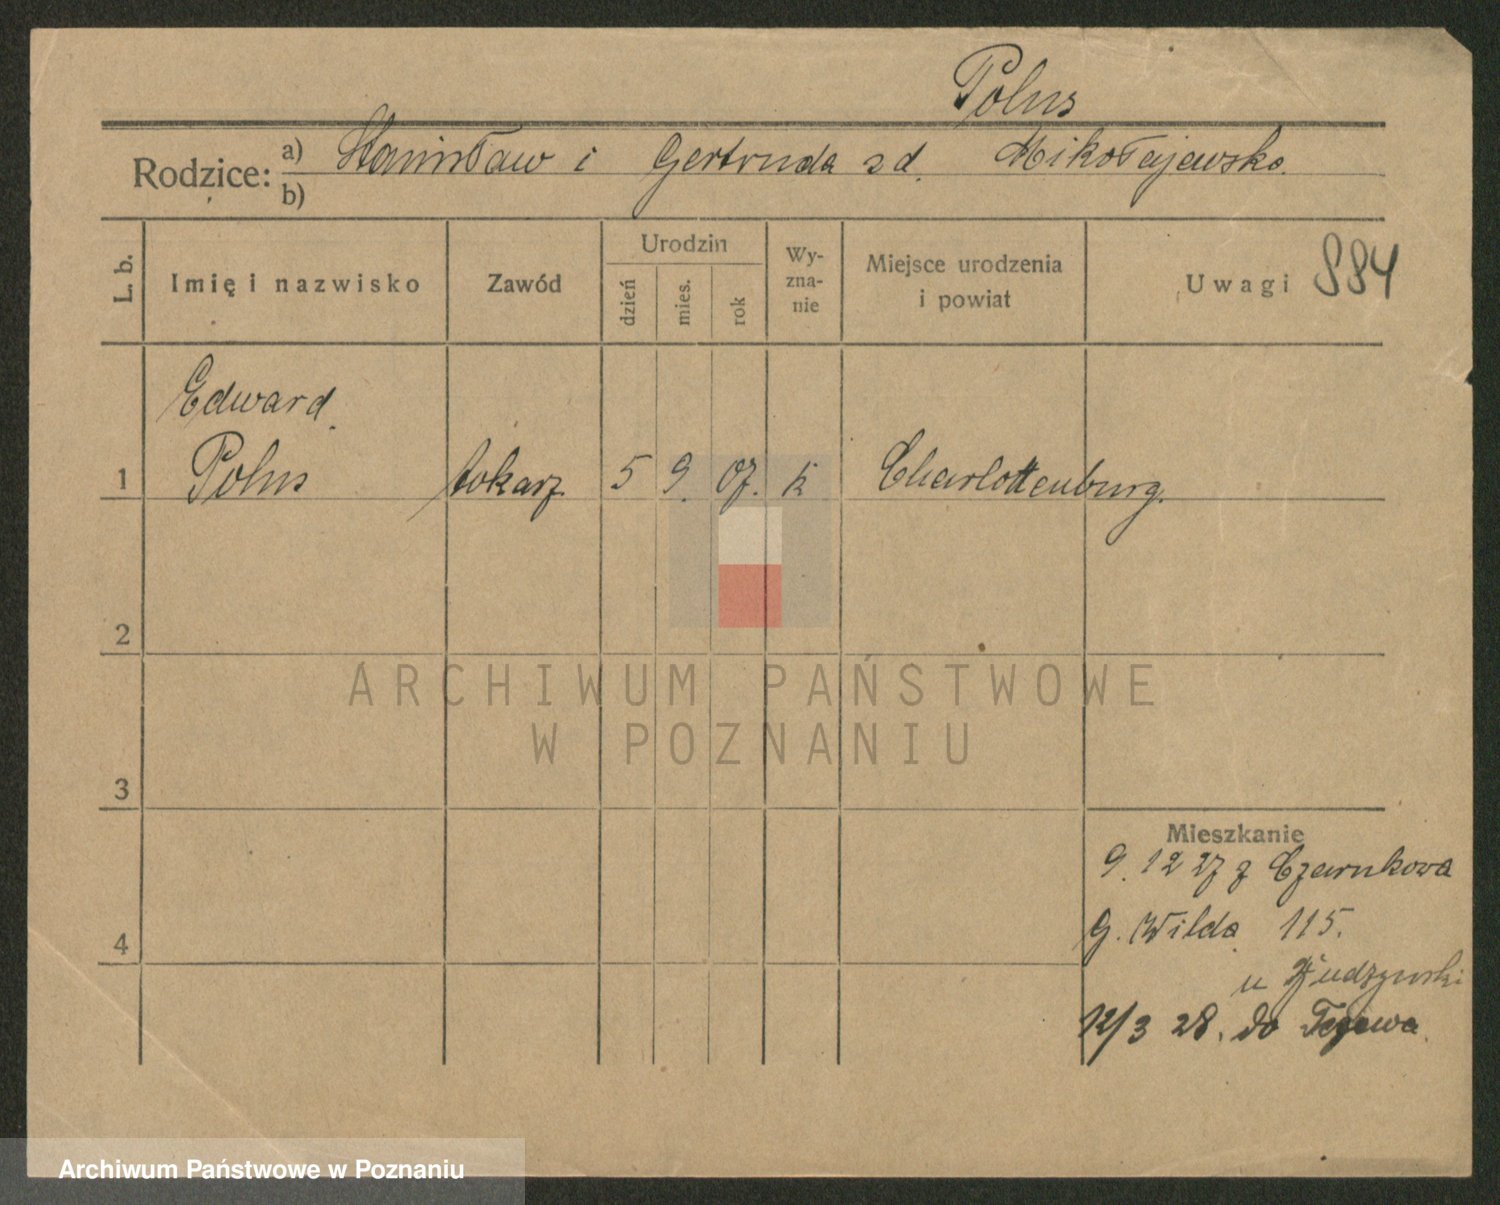 Polus
Rodzice: a) Stanisław i Gertruda z d. Mikołajewska.
b)
L. b.
Imię i nazwisko
Zawód
Urodzin
dzień
mies.
rok
Wy-
zna-
nie
Miejsce urodzenia
i powiat
Uwagi 884
Edward
1 Polus tokarz 5 9. 07. k Charlottenburg.
2
3
4
Mieszkanie
9. 12 27 z Czarnkowa
G. Wilda 115.
u
12/3 28. do Tczewa.
ARCHIWUM PAŃSTWOWE
W POZNANIU
Archiwum Państwowe w Poznaniu